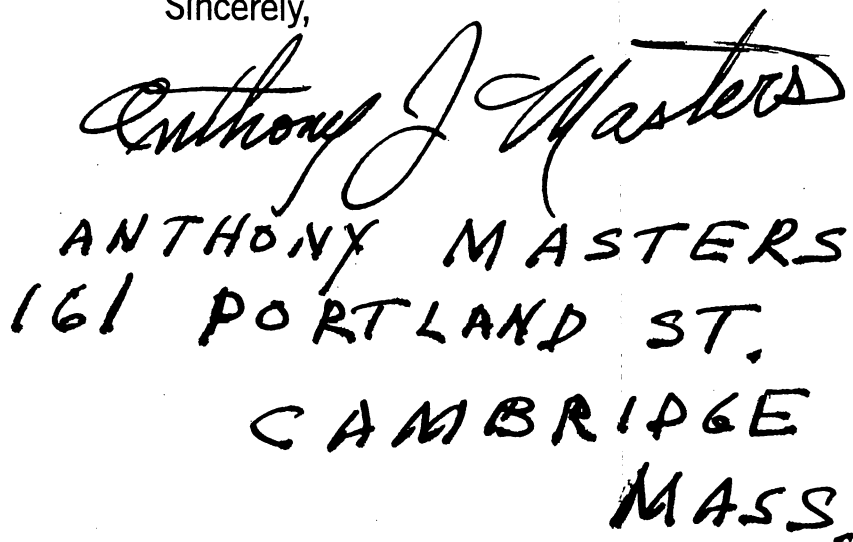 Sincerely,
Anthony J Masters
ANTHONY MASTERS
161 PORTLAND ST.
CAMBRIDGE
MASS.